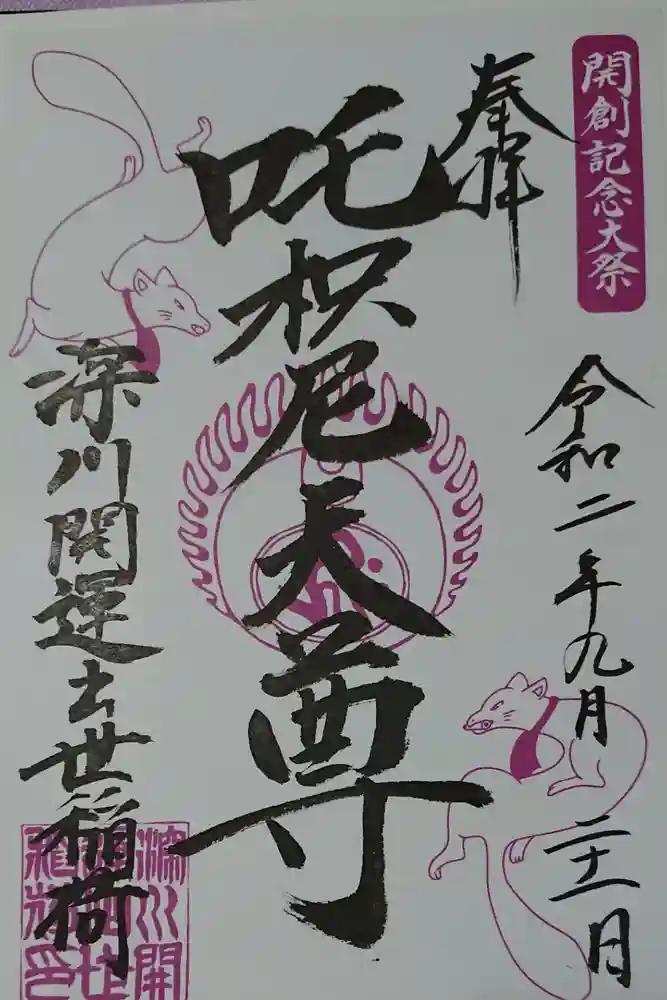 開創記念大祭
令和二年九月二十一日
奉拝
吒枳尼天尊
深川開運出世稲荷